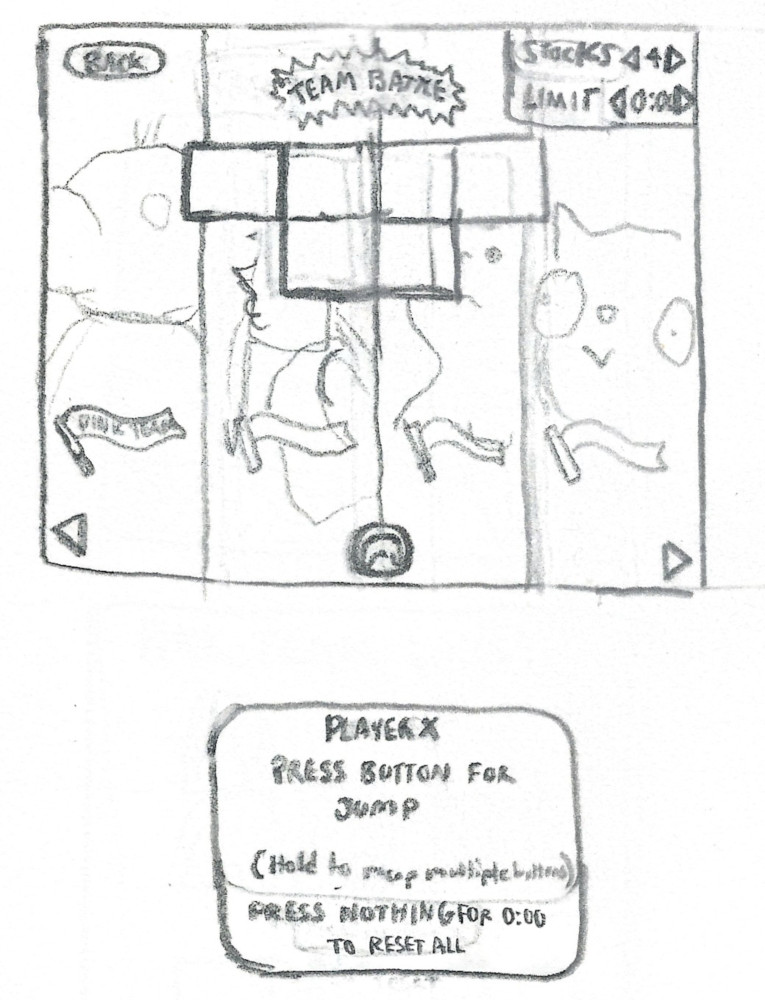 BACK
TEAM BATTLE
STOCKS 4
LIMIT 0:00
PINK TEAM
PLAYER X
PRESS BUTTON FOR
JUMP
(Hold to map multiple buttons)
PRESS NOTHING FOR 0:00
TO RESET ALL